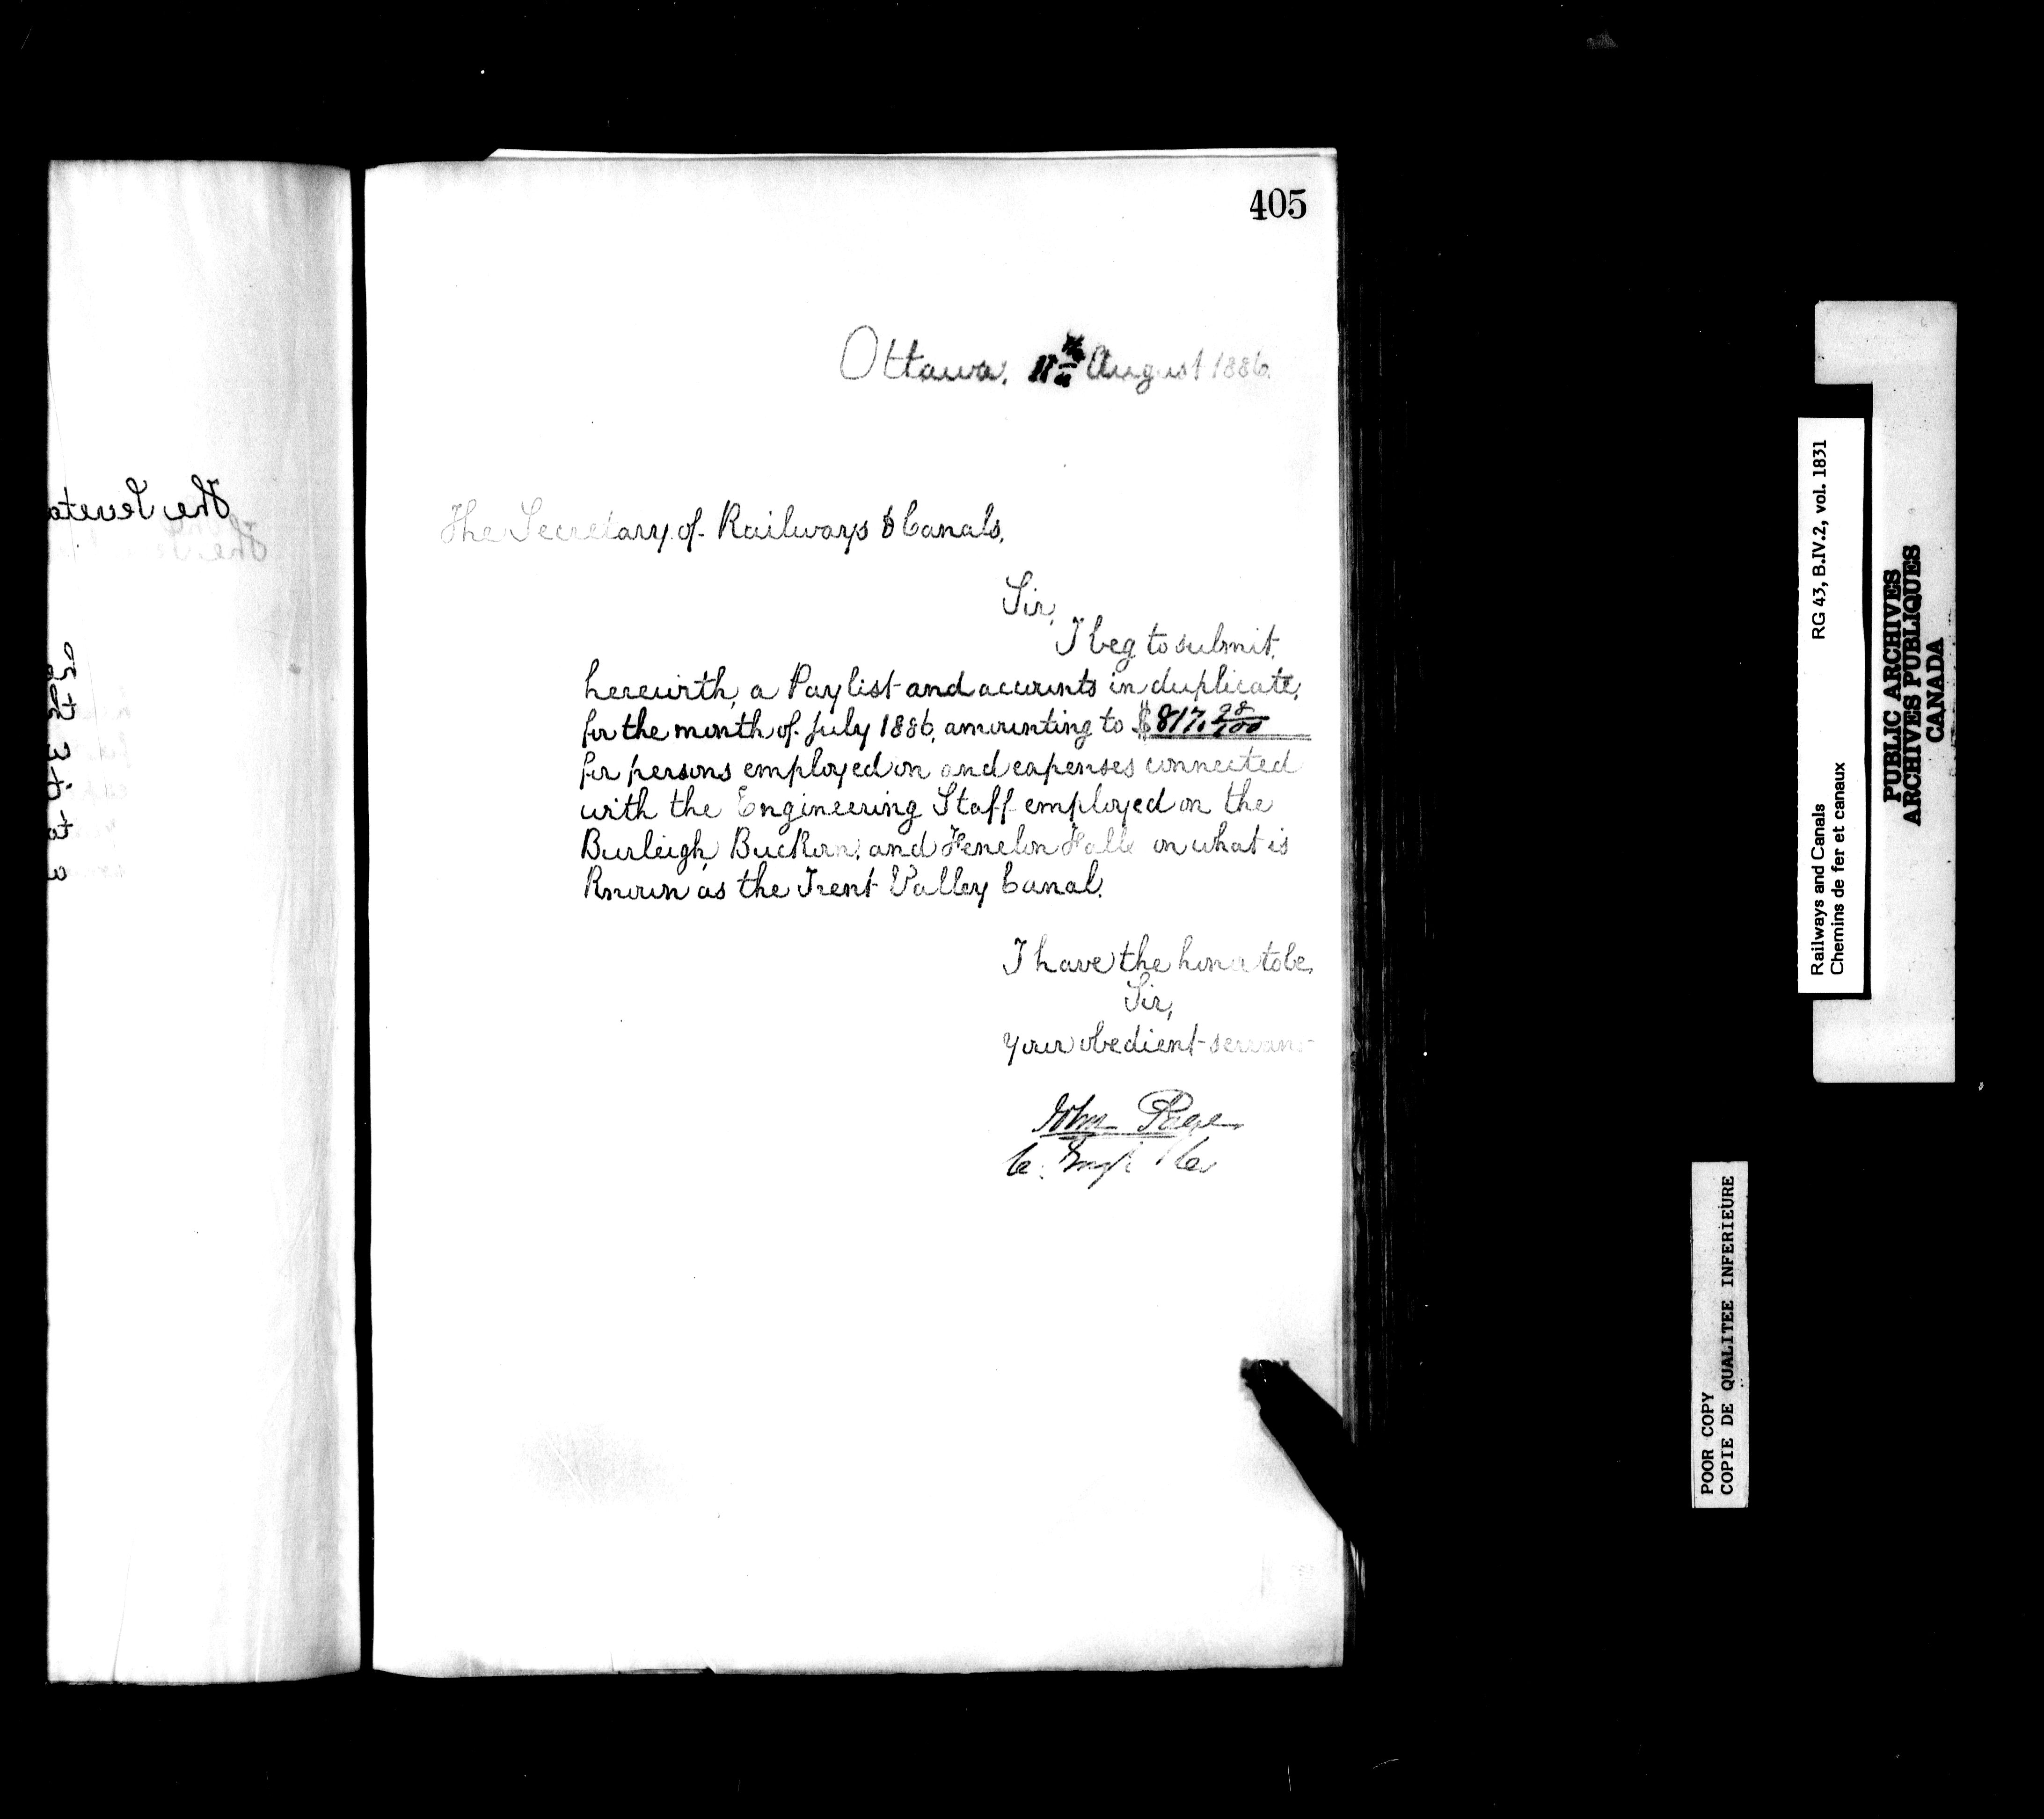 405
Ottawa, 11th August 1886.
The Secretary of Railways & Canals,
Sir,
I beg to submit,
herewith, a Paylist and accounts in duplicate,
for the month of July 1886, amounting to $817.28/100
for persons employed on and expenses connected
with the Engineering Staff employed on the
Burleigh, Buckorn, and Fenelon Falls on what is
Known as the Trent Valley Canal.
I have the honor to be,
Sir,
Your obedient servant
John Page
C. Engr Can
The Secreta
The Se
RG 43, B.IV.2, vol. 1831
Railways and Canals
Chemins de fer et canaux
PUBLIC ARCHIVES
ARCHIVES PUBLIQUES
CANADA
POOR COPY
COPIE DE QUALITEE INFERIEURE